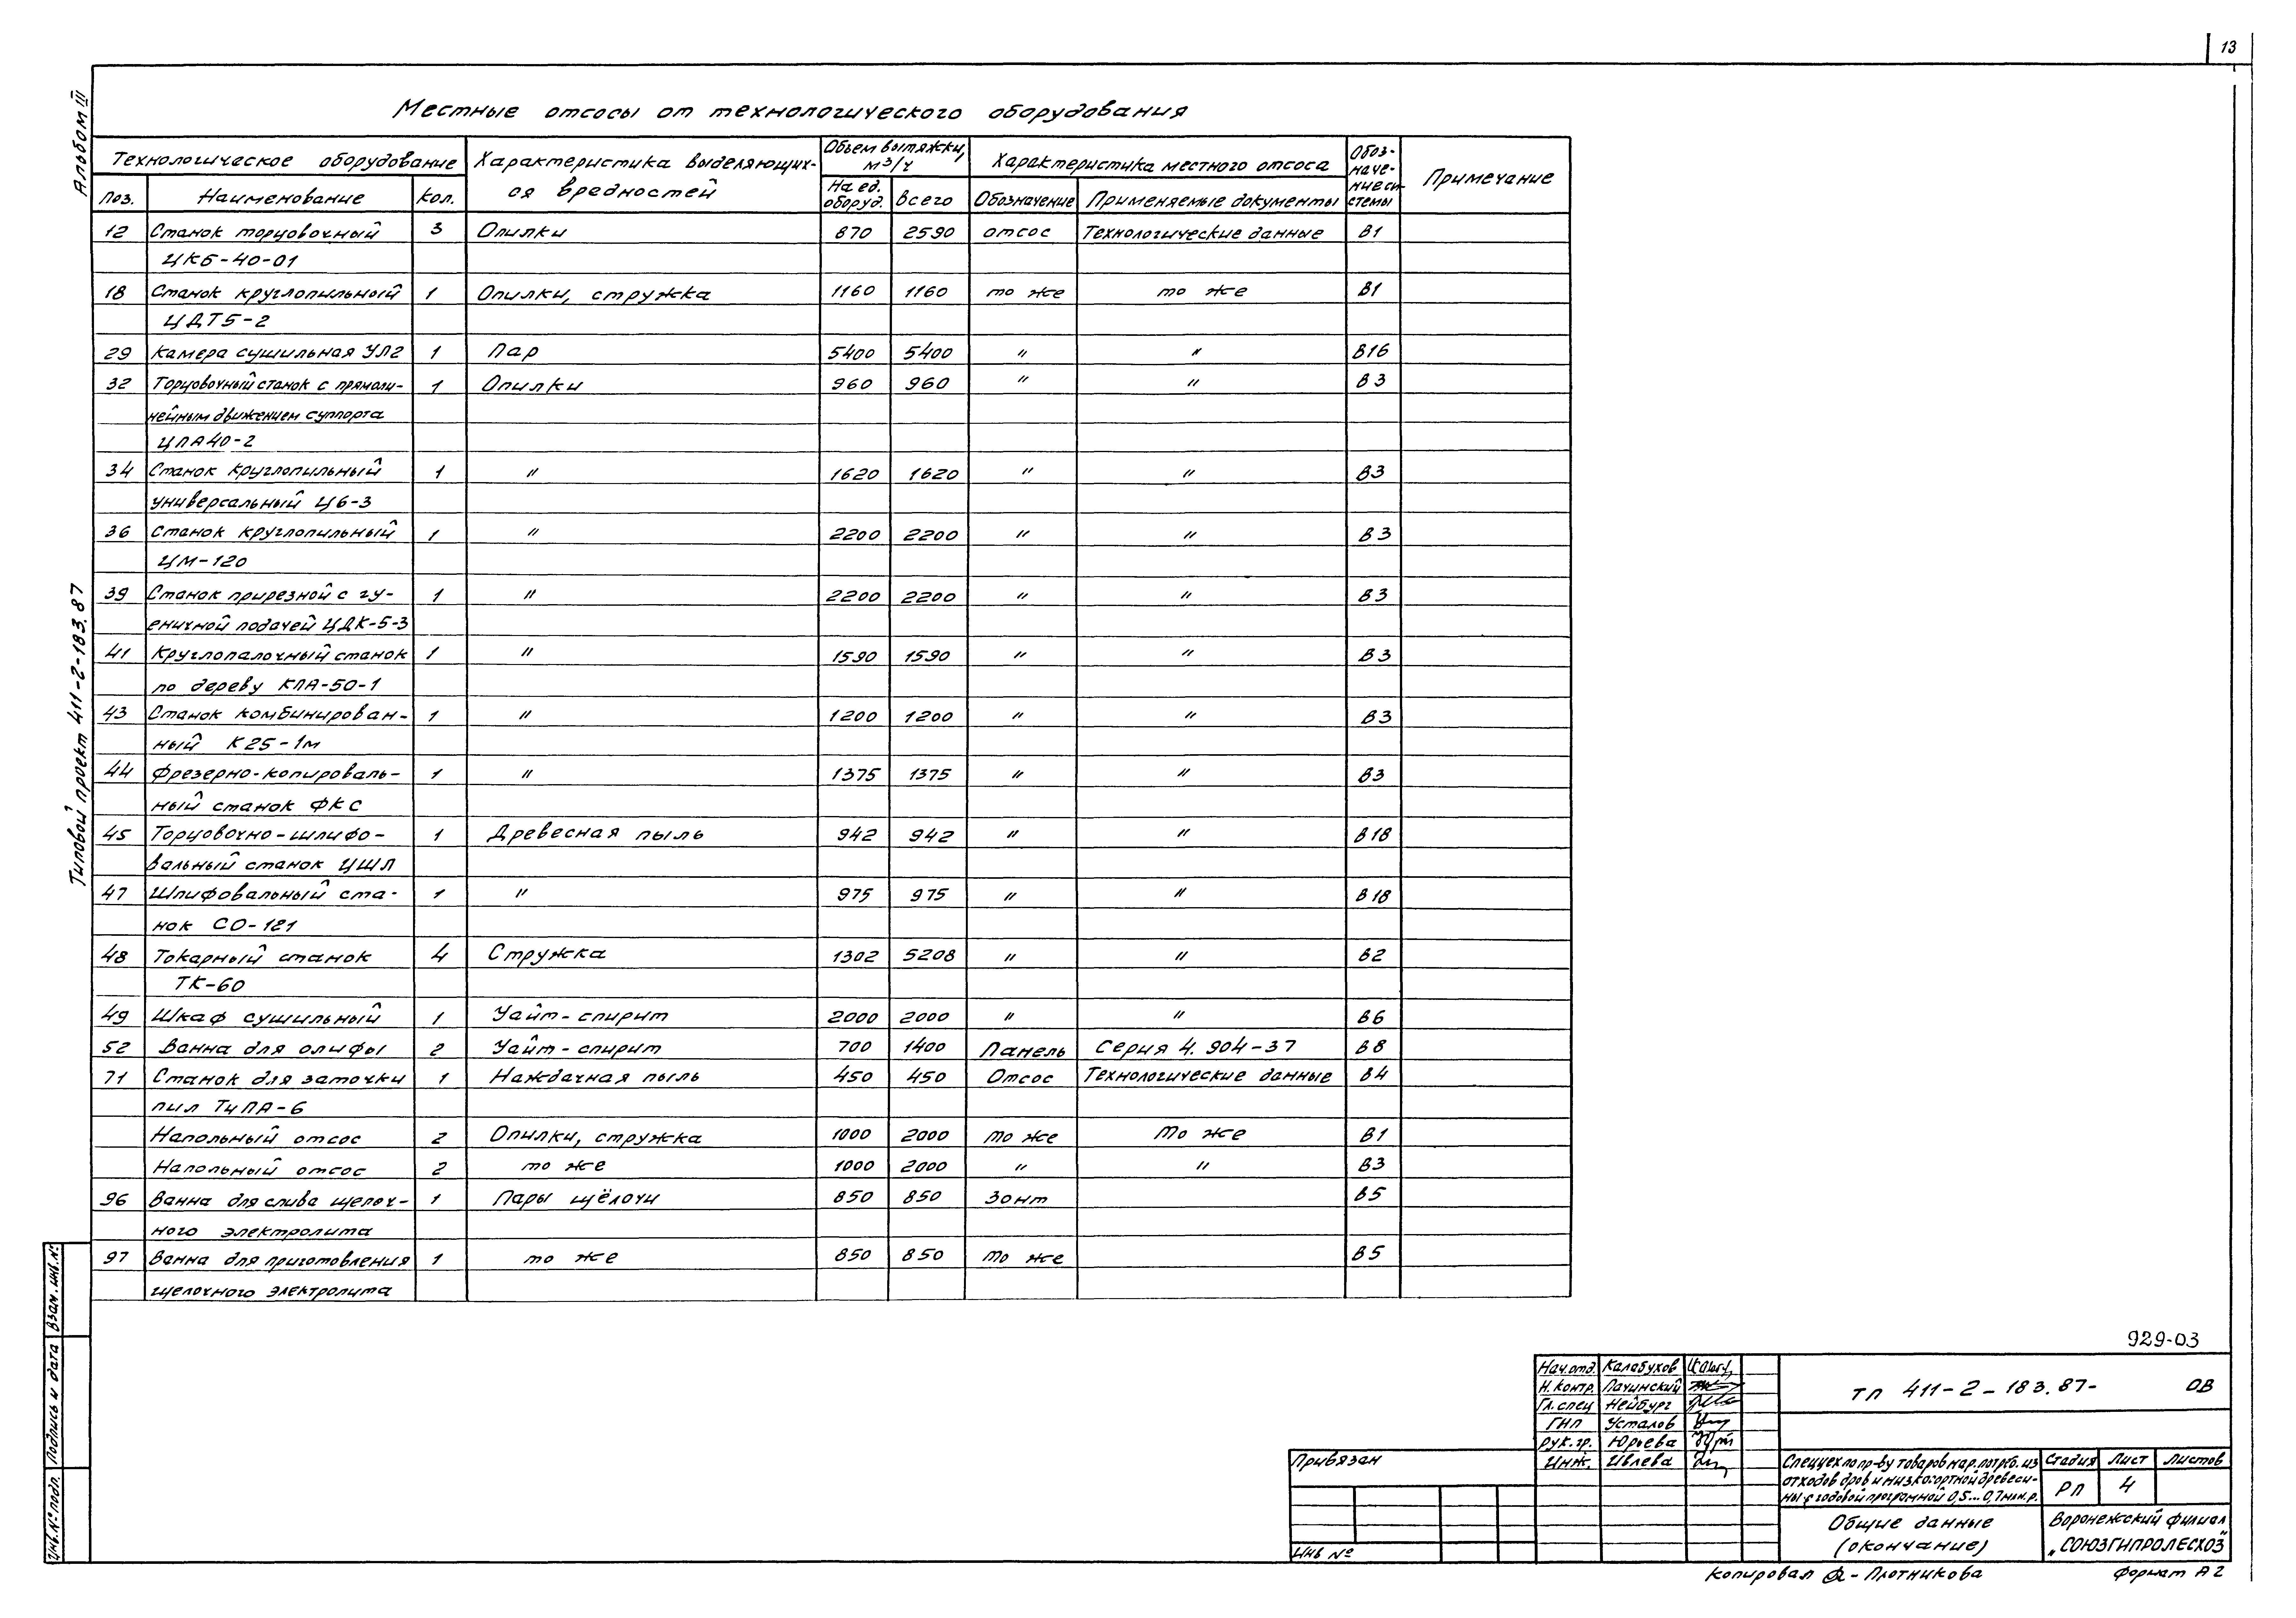 13
Альбом III
Типовой проект 411-2-183.87
Местные отсосы от технологического оборудования
Технологическое оборудование
Характеристика выделяющих-
ся вредностей
Объем вытяжки,
м³/ч
Характеристика местного отсоса
Обоз-
наче-
ние си-
стемы
Примечание
Поз. Наименование Кол. На ед. оборуд. Всего Обозначение Применяемые документы
12 Станок торцовочный 3 Опилки 870 2590 отсос Технологические данные В1
ЦКБ-40-01
18 Станок круглопильный 1 Опилки, стружка 1160 1160 то же то же В1
ЦДТ5-2
29 Камера сушильная УЛ2 1 Пар 5400 5400 " " В16
32 Торцовочный станок с прямоли- 1 Опилки 960 960 " " В3
нейным движением суппорта
ЦПА40-2
34 Станок круглопильный 1 " 1620 1620 " " В3
универсальный Ц6-3
36 Станок круглопильный 1 " 2200 2200 " " В3
ЦМ-120
39 Станок прирезной с гу- 1 " 2200 2200 " " В3
еничной подачей ЦДК-5-3
41 Круглопалочный станок 1 " 1590 1590 " " В3
по дереву КПА-50-1
43 Станок комбинирован- 1 " 1200 1200 " " В3
ный К25-1м
44 Фрезерно-копироваль- 1 " 1375 1375 " " В3
ный станок ФКС
45 Торцовочно-шлифо- 1 Древесная пыль 942 942 " " В18
вальный станок ЦШЛ
47 Шлифовальный ста- 1 " 975 975 " " В18
нок СО-121
48 Токарный станок 4 Стружка 1302 5208 " " В2
ТК-60
49 Шкаф сушильный 1 Уайт-спирит 2000 2000 " " В6
52 Ванна для олифы 2 Уайт-спирит 700 1400 Панель Серия 4.904-37 В8
71 Станок для заточки 1 Наждачная пыль 450 450 Отсос Технологические данные В4
пил ТчПА-6
Напольный отсос 2 Опилки, стружка 1000 2000 то же то же В1
Напольный отсос 2 то же 1000 2000 " " В3
96 Ванна для слива щелоч- 1 Пары щёлочи 850 850 Зонт В5
ного электролита
97 Ванна для приготовления 1 то же 850 850 то же В5
щелочного электролита
929-03
Нач.отд. Калабухов
Н.контр. Пачинский
Гл.спец Нейбург
ГИП Усталов
рук.гр. Юрьева
Инж. Ивлева
ТП 411-2-183.87- ОВ
Привязан
Инв №
Спеццех по пр-ву товаров нар.потреб. из
отходов дров и низкосортной древеси-
ны с годовой программой 0,5...0,7 млн.р.
Стадия Лист Листов
РП 4
Общие данные
(окончание)
Воронежский филиал
„СОЮЗГИПРОЛЕСХОЗ"
Копировал - Плотникова Формат А2
Взам. инв. №
Подпись и дата
Инв. № подл.